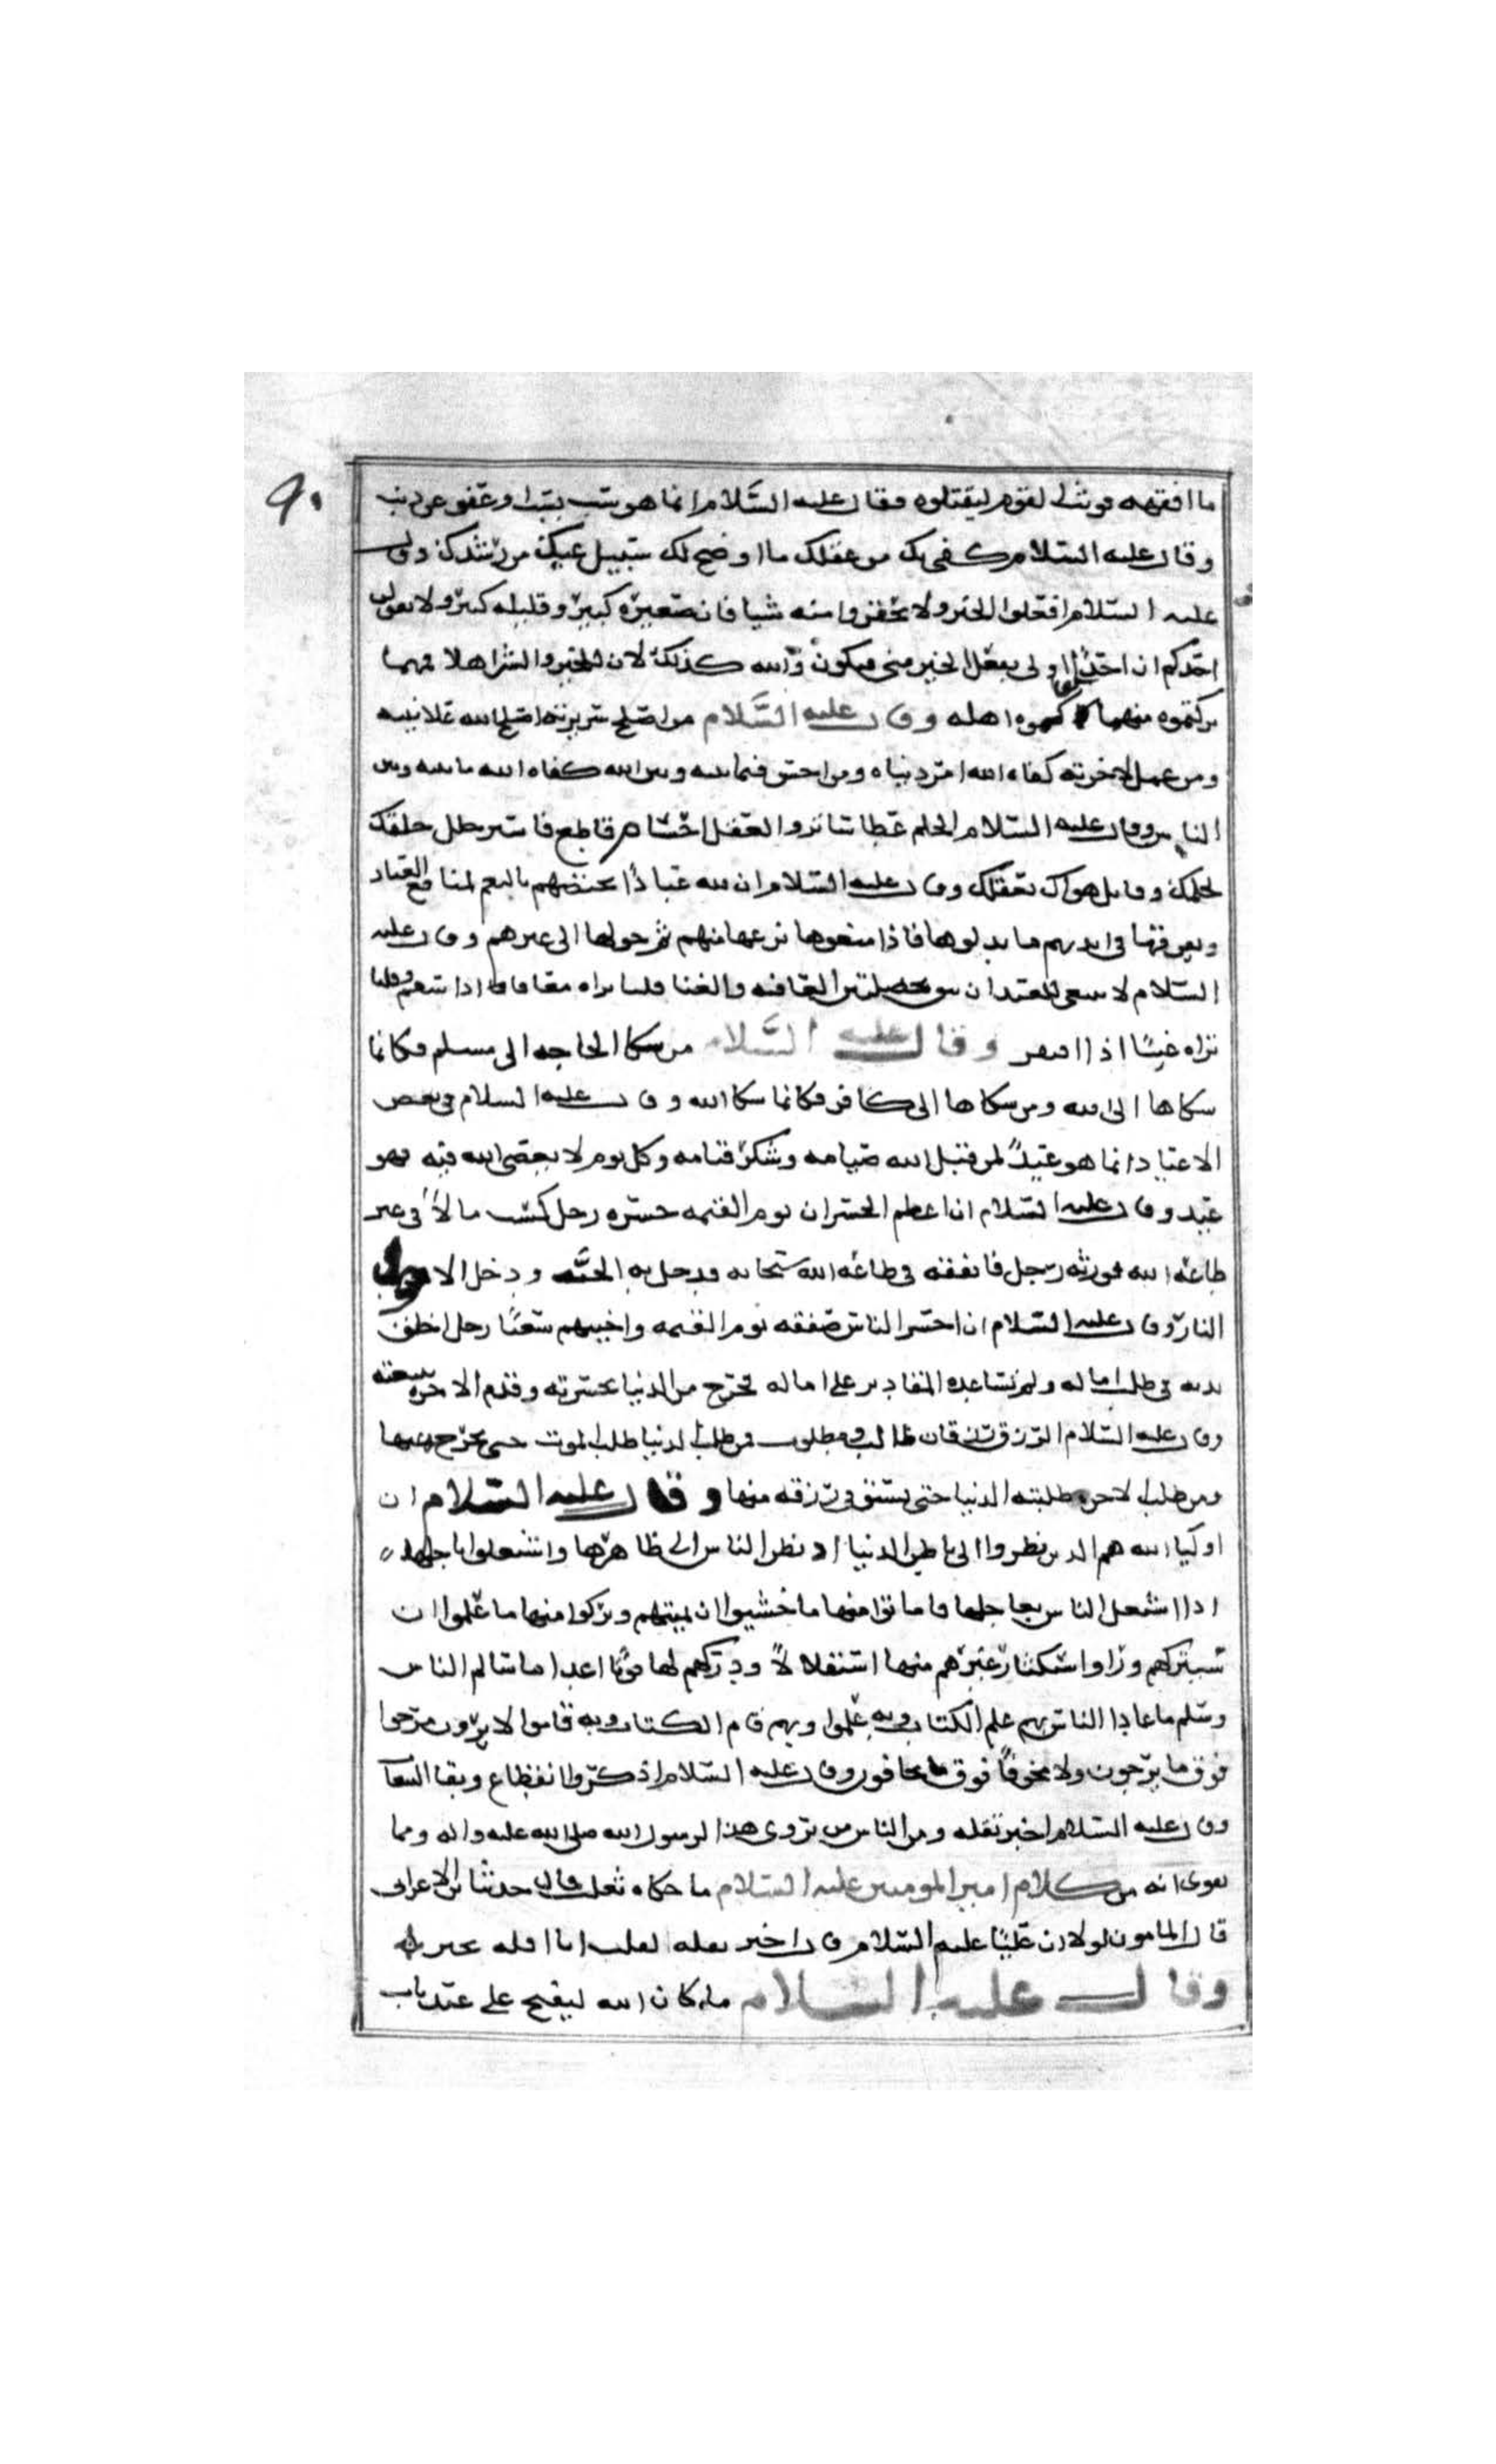 ٩٠
ما افقهه فوثب القوم ليقتلوه فقال عليه السَّلام انما هو سب بسب او عفو عن ذنب
وقال عليه السلام كفى بك من عقلك ما اوضح لك سبيل غيك من رشدك وقال
عليه السلام افعلوا الخير ولا تحقروا منه شيا فان صغيره كبير وقليله كثير ولا يقولن
احدكم ان احدًا اولى بفعل الخير مني فيكون والله كذلك لان للخير والشر اهلا فمهما
تركتموه منهما كفاكموه اهله وقال عليه السَّلام من اصلح سريرته اصلح الله علانيته
ومن عمل لاخرته كفاه الله امر دنياه ومن احسن فيما بينه وبين الله كفاه الله ما بينه وبين
الناس وقال عليه السلام الحلم غطا ساتر والعقل حسام قاطع فاستر خلل خلقك
بحلمك وقاتل هواك بعقلك وقال عليه السلام ان لله عبادًا يختصهم بالنعم لمنافع العباد
ويقرها في ايديهم ما بذلوها فاذا منعوها نزعها منهم ثم حولها الى غيرهم وقال عليه
السلام لا ينبغي للعبد ان يثق بخصلتين العافيه والغنا بينا تراه معافا اذا سقم وبينا
تراه غنيًا اذا افتقر وقال عليه السَّلام من شكا الحاجه الى مسلم فكانما
شكاها الى الله ومن شكاها الى كافر فكانما شكا الله وقال عليه السلام في بعض
الاعياد انما هو عيدٌ لمن قبل الله صيامه وشكر قيامه وكل يوم لا يعصى الله فيه فهو
عيد وقال عليه السلام ان اعظم الحسرات يوم القيمه حسره رجل كسب مالاً في غير
طاعة الله فورثه رجل فانفقه في طاعة الله سبحانه فدخل به الجنَّه ودخل الاول
النار وقال عليه السلام ان اخسر الناس صفقه يوم القيمه واخيبهم سعيًا رجل اخلق
بدنه في طلب اماله ولم تساعده المقادير على اماله فخرج من الدنيا بحسرته وقدم الاخره بتبعته
وقال عليه السلام الرزق رزقان طالب ومطلوب فمن طلب الدنيا طلبه الموت حتى يخرجه منها
ومن طلب الاخره طلبته الدنيا حتى يستوفي رزقه منها وقال عليه السلام ان
اوليا الله هم الذين نظروا الى باطن الدنيا اذ نظر الناس الى ظاهرها واشتغلوا باجلها
اذا اشتغل الناس بعاجلها فاماتوا منها ما خشيوا ان يميتهم وتركوا منها ما علموا ان
سيتركهم وراوا استكثار غيرهم منها استقلالاً ودركهم لها فوتًا اعدا ما سالم الناس
وسلم ما عادا الناس بهم علم الكتاب وبه علموا وبهم قام الكتاب وبه قاموا لا يرون مرجوا
فوق ما يرجون ولا مخوفًا فوق ما يخافون وقال عليه السلام اذكروا انقطاع وبقا التبعات
وقال عليه السلام اخبر تقله ومن الناس من يروي هذا لرسول الله صلى الله عليه واله ومما
يقوي انه من كلام امير المومنين عليه السلام ما حكاه ثعلب قال حدثنا ابن الاعرابي
قال المامون لولا ان عليًا عليه السلام قال اخبر تقله لقلت انا اقله تخبر
وقال عليه السلام ما كان الله ليفتح على عبد باب